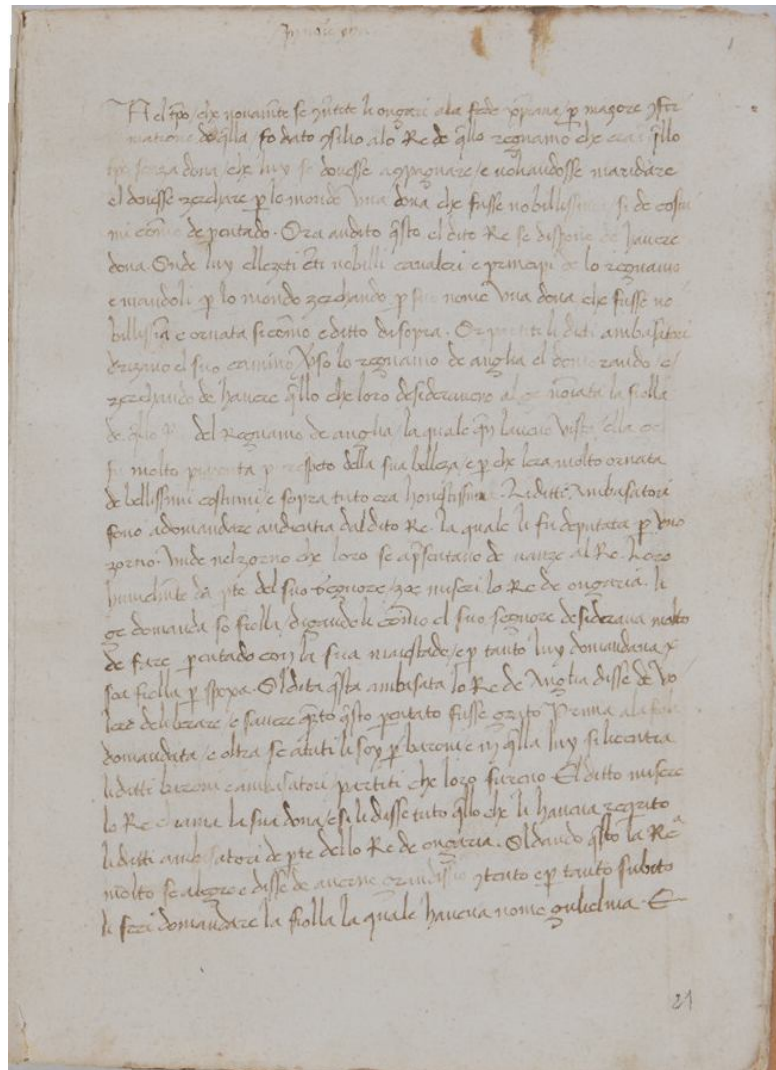 Nel tpo che novamte se 9vertete li ongari ala fede xpiana p magore 9fir
matione de qlla fo dato 9silio alo Re de qllo regnamo che era qllo
tpo senza dona che luy se dovesse acpagnare e voliandosse maridare
el dovesse zerchare p lo mondo una dona che fusse nobillissima si de costu
mi como de pentado. Ora audito qsto el dito Re se dispone de havere
dona. Onde luy ellezeti cti nobilli cavaleri e principi de lo regnamo
e mandoli p lo mondo zerchando p suo nome una dona che fusse no
billisia e ornata sicomo e ditto disopra. Or partiti li diti ambasatori
drizano el suo camino vso lo regnamo de anglia el demorando e
zerchando de havere qllo che loro desideraveno nomata la fiolla
de qllo Re del Regnamo de anglia la quale qn laveno vista ella
fu molto p respeto della sua belleza e p che lera molto ornata
de bellissimi costumi e sopra tuto era honestissima. Li ditti Ambasatori
feno adomandare audientia dal dito Re. la quale li fu deputata p uno
zorno. Unde nel zorno che loro se apsentano de nanze al Re. Loro
humelmte da pte del suo segnore zoe miseri lo Re de ongaria. li
ge domanda so fiolla digandoli como el suo segnore desiderava molto
de fare pentado con la sua maiestade e p tanto luy domandava
soa fiolla p spoxa. Oldita qsta ambasata lo Re de Anglia disse de vo
lere deliberare e savere qnto qsto pentato fusse grato Prima ala fiola
domandata e oltra se atuti li soy baroni e in qlla luy si licentia
li ditti baroni e ambasatori partiti che loro fureno El ditto misere
lo Re chiama la sua dona e si li disse tuto qllo che li haveva reqrito
li ditti ambasatori de pte dello Re de ongaria. Oldando qsto la Rea
molto se alegre e disse de averne grandissio 9tento e p tanto subito
li feci domandare la fiolla la quale haveva nome gulielma. E
21